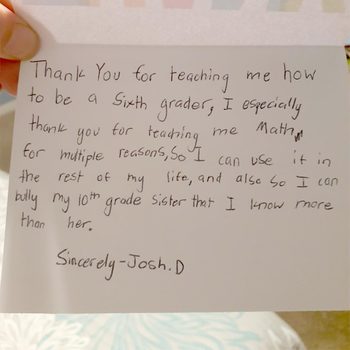 Thank You for teaching me how
to be a Sixth grader, I especially
thank you for teaching me Math,
for multiple reasons, So I can use it in
the rest of my life, and also So I can
bully my 10th grade Sister that I know more
than her.
Sincerely-Josh.D